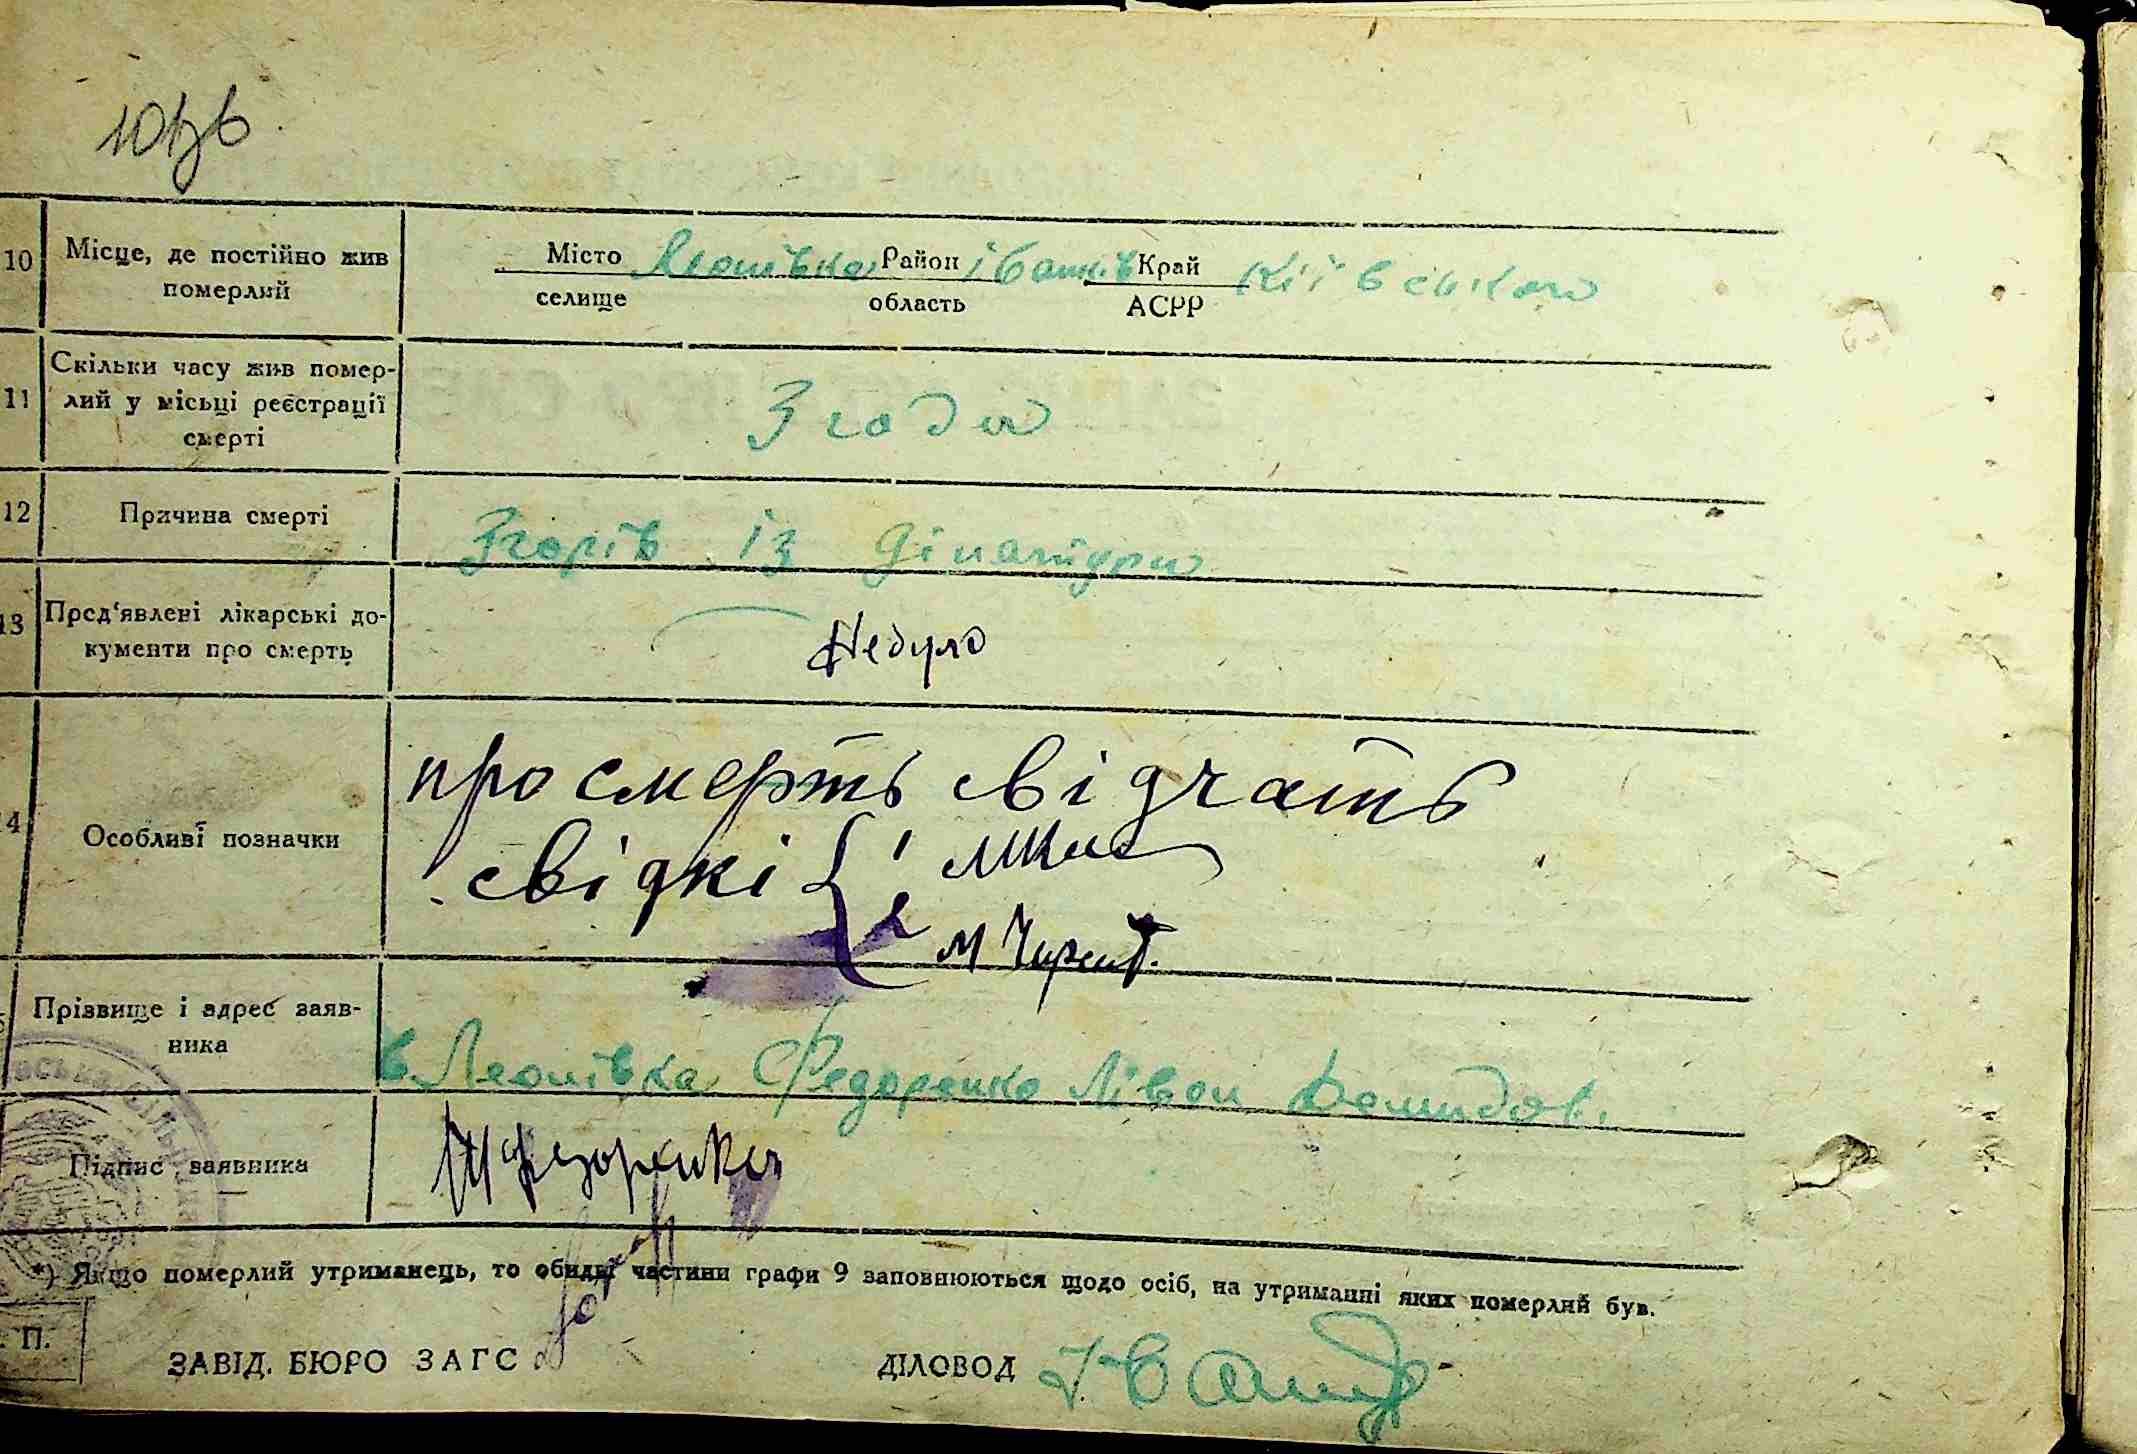 10 Місце, де постійно жив
померлий
Місто Леонівка Район Іванків Край Київської
селище область АСРР
11 Скільки часу жив помер-
лий у місьці реєстрації
смерті
3 года
12 Причина смерті
Згорів із
13 Пред'явлені лікарські до-
кументи про смерть
Небуло
4 Особливі позначки
про смерть свідчать
свідкі { 1
2 М
Прізвище і адрес заяв-
ника
в Леонівка Федоренко Лівон Демидов.
Підпис заявника
Федоренко
*) Якщо померлий утриманець, то обидві частини графи 9 заповнюються щодо осіб, на утриманні яких померлий був.
П.
ЗАВІД. БЮРО ЗАГС
ДІЛОВОД